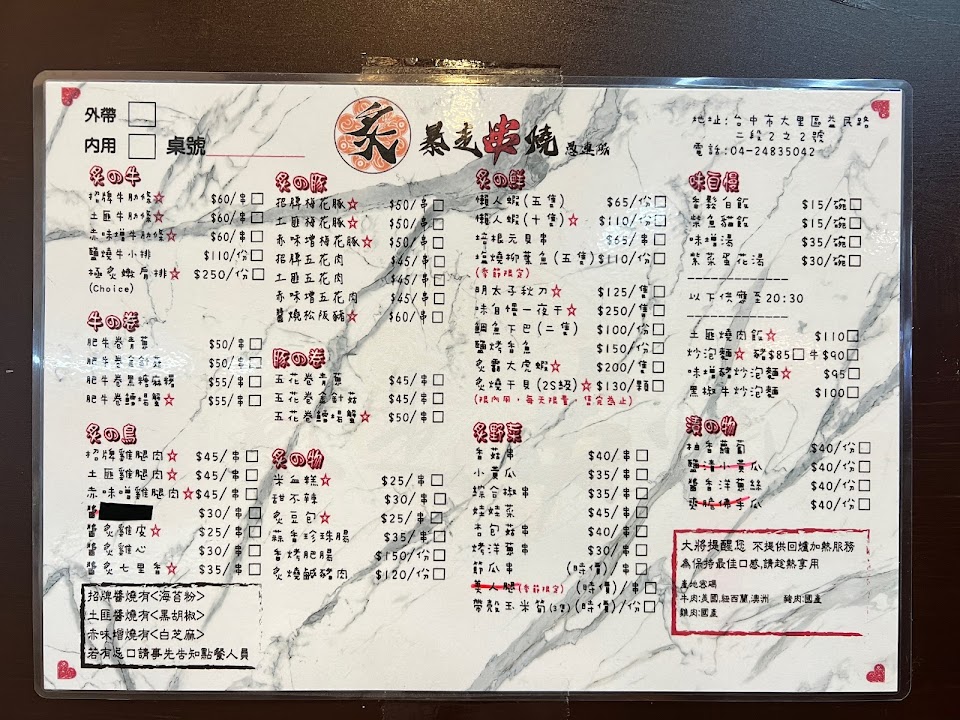 外帶
內用 桌號
炙
暴走串燒 愚連隊
地址:台中市大里區益民路
二段2之2號
電話:04-24835042
炙の牛
招牌牛肋條☆ $60/串
土匪牛肋條☆ $60/串
赤味增牛肋條☆ $60/串
鹽燒牛小排 $110/份
極炙嫩肩排☆ $250/份
(Choice)
牛の卷
肥牛卷青蔥 $50/串
肥牛卷金針菇 $50/串
肥牛卷黑糖麻糬 $55/串
肥牛卷鱈場蟹☆ $55/串
炙の鳥
招牌雞腿肉☆ $45/串
土匪雞腿肉☆ $45/串
赤味噌雞腿肉☆ $45/串
醬 $30/串
醬炙雞皮☆ $25/串
醬炙雞心 $30/串
醬炙七里香☆ $35/串
招牌醬燒有<海苔粉>
土匪醬燒有<黑胡椒>
赤味增燒有<白芝麻>
若有忌口請事先告知點餐人員
炙の豚
招牌梅花豚☆ $50/串
土匪梅花豚☆ $50/串
赤味增梅花豚☆ $50/串
招牌五花肉 $45/串
土匪五花肉 $45/串
赤味增五花肉 $45/串
醬燒松阪豬☆ $60/串
豚の卷
五花卷青蔥 $45/串
五花卷金針菇 $45/串
五花卷鱈場蟹☆ $50/串
炙の物
米血糕☆ $25/串
甜不辣 $30/串
炙豆包☆ $25/串
蒜香珍珠腸 $35/串
香烤肥腸 $150/份
炙燒鹹豬肉 $120/份
炙の鮮
懶人蝦(五隻) $65/份
懶人蝦(十隻)☆ $110/份
培根元貝串 $65/串
塩燒柳葉魚(五隻) $110/份
(季節限定)
明太子秋刀☆ $125/隻
味自慢一夜干☆ $250/隻
鯛魚下巴(二隻) $100/份
鹽烤香魚 $150/份
炙霸大虎蝦☆ $200/隻
炙燒干貝(2S級)☆ $130/顆
(限內用,每天限量,售完為止)
炙野菜
香菇串 $40/串
小黃瓜 $35/串
綜合椒串 $35/串
燒娃菜 $45/串
杏包菇串 $40/串
烤洋蔥串 $30/串
筋瓜串 (時價)/串
美人腿(季節限定) (時價)/串
帶殼玉米筍(3支) (時價)/份
味自慢
香鬆白飯 $15/碗
柴魚貓飯 $15/碗
味增湯 $35/碗
紫菜蛋花湯 $30/碗
以下供應至20:30
土匪燒肉飯☆ $110
炒泡麵☆ 豬$85 牛$90
味增豬炒泡麵☆ $95
黑椒牛炒泡麵 $100
漬の物
柚香蘿蔔 $40/份
鹽漬小黃瓜 $40/份
醬香洋蔥絲 $40/份
爽脆佛手瓜 $40/份
大將提醒您 不提供回爐加熱服務
為保持最佳口感,請趁熱享用
產地宮碼
牛肉:美國,紐西蘭,澳洲 豬肉:國產
雞肉:國產